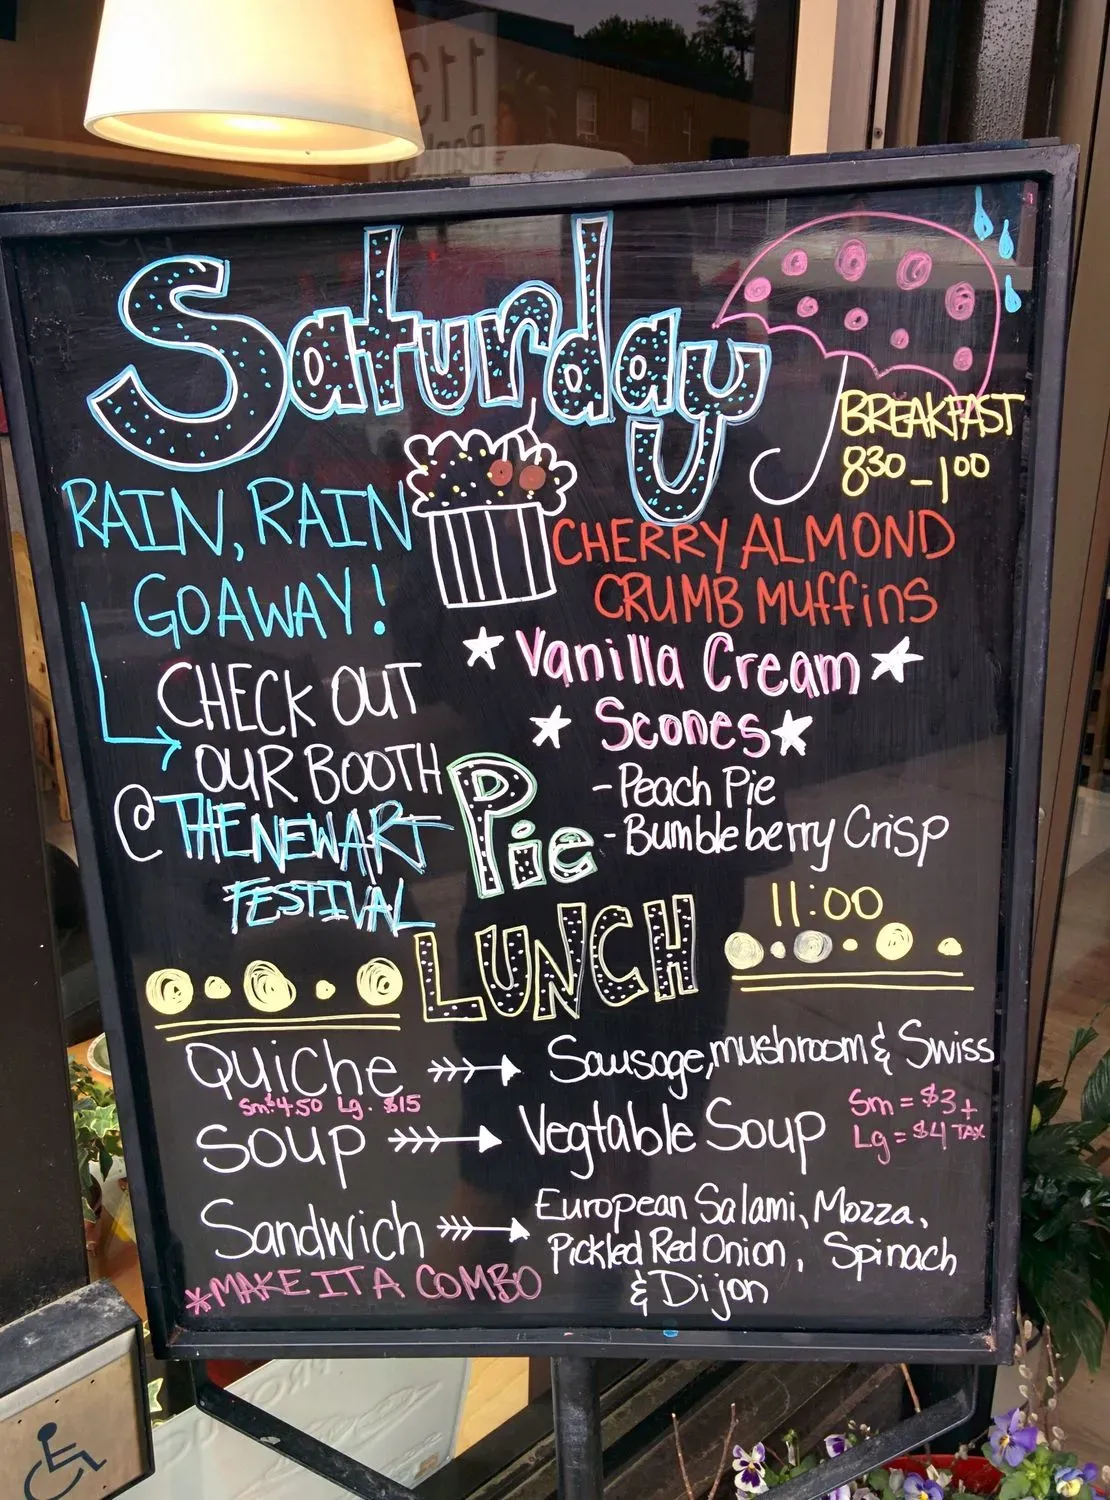 Saturday
BREAKFAST
8:30-1:00
RAIN, RAIN
GO AWAY!
CHERRY ALMOND
CRUMB MUFFINS
Vanilla Cream
Scones
CHECK OUT
OUR BOOTH
@ THE NEW ART
FESTIVAL
Pie
- Peach Pie
- Bumbleberry Crisp
LUNCH
11:00
QUICHE
Sausage, mushroom & Swiss
Sm. $4.50 Lg. $15
SOUP
Vegtable Soup
Sm = $3 +
Lg = $4 TAX
Sandwich
European Salami, Mozza,
Pickled Red Onion, Spinach
& Dijon
*MAKE IT A COMBO